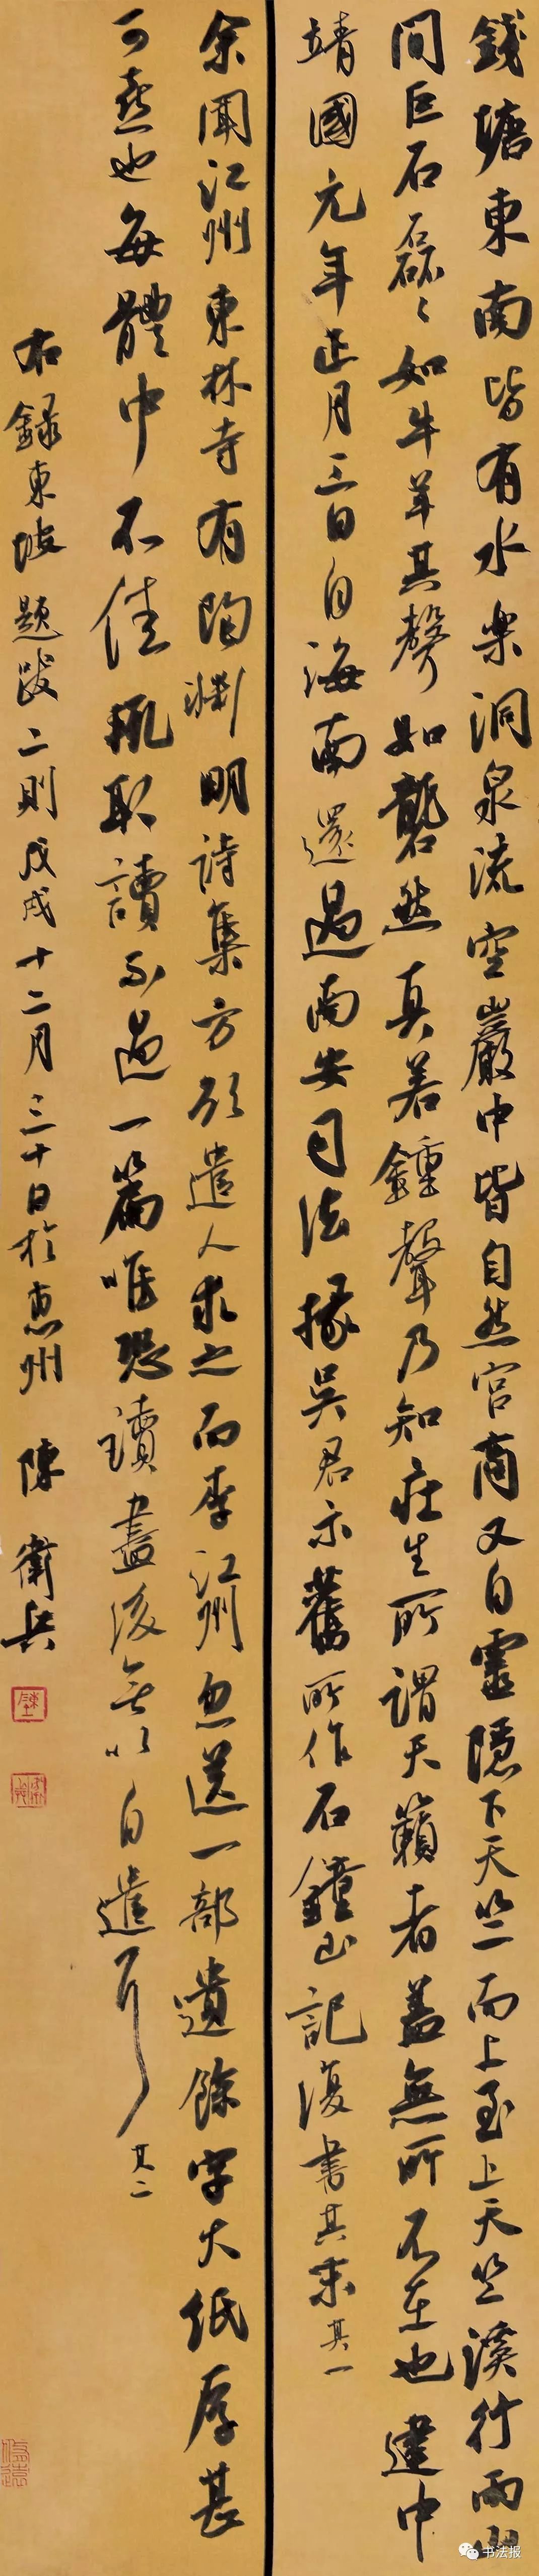 錢塘東南皆有水樂洞泉流空巖中皆自然宫商又自靈隱下天竺而上至上天竺溪行兩山
間巨石磊々如牛羊其聲如礱然真若鍾聲乃知莊生所謂天籟者蓋無所不在也建中
靖國元年正月三日自海南還過南安司法掾吳君示舊所作石鐘山記復書其末其一
余聞江州東林寺有陶淵明詩集方欲遣人求之而李江州忽送一部遺余字大紙厚甚
可喜也每體中不佳輒取讀不過一篇唯恐讀盡後無以自遣耳其二
右録東坡題跋二則戊戌十二月三十日於惠州 陳衛兵
书法报